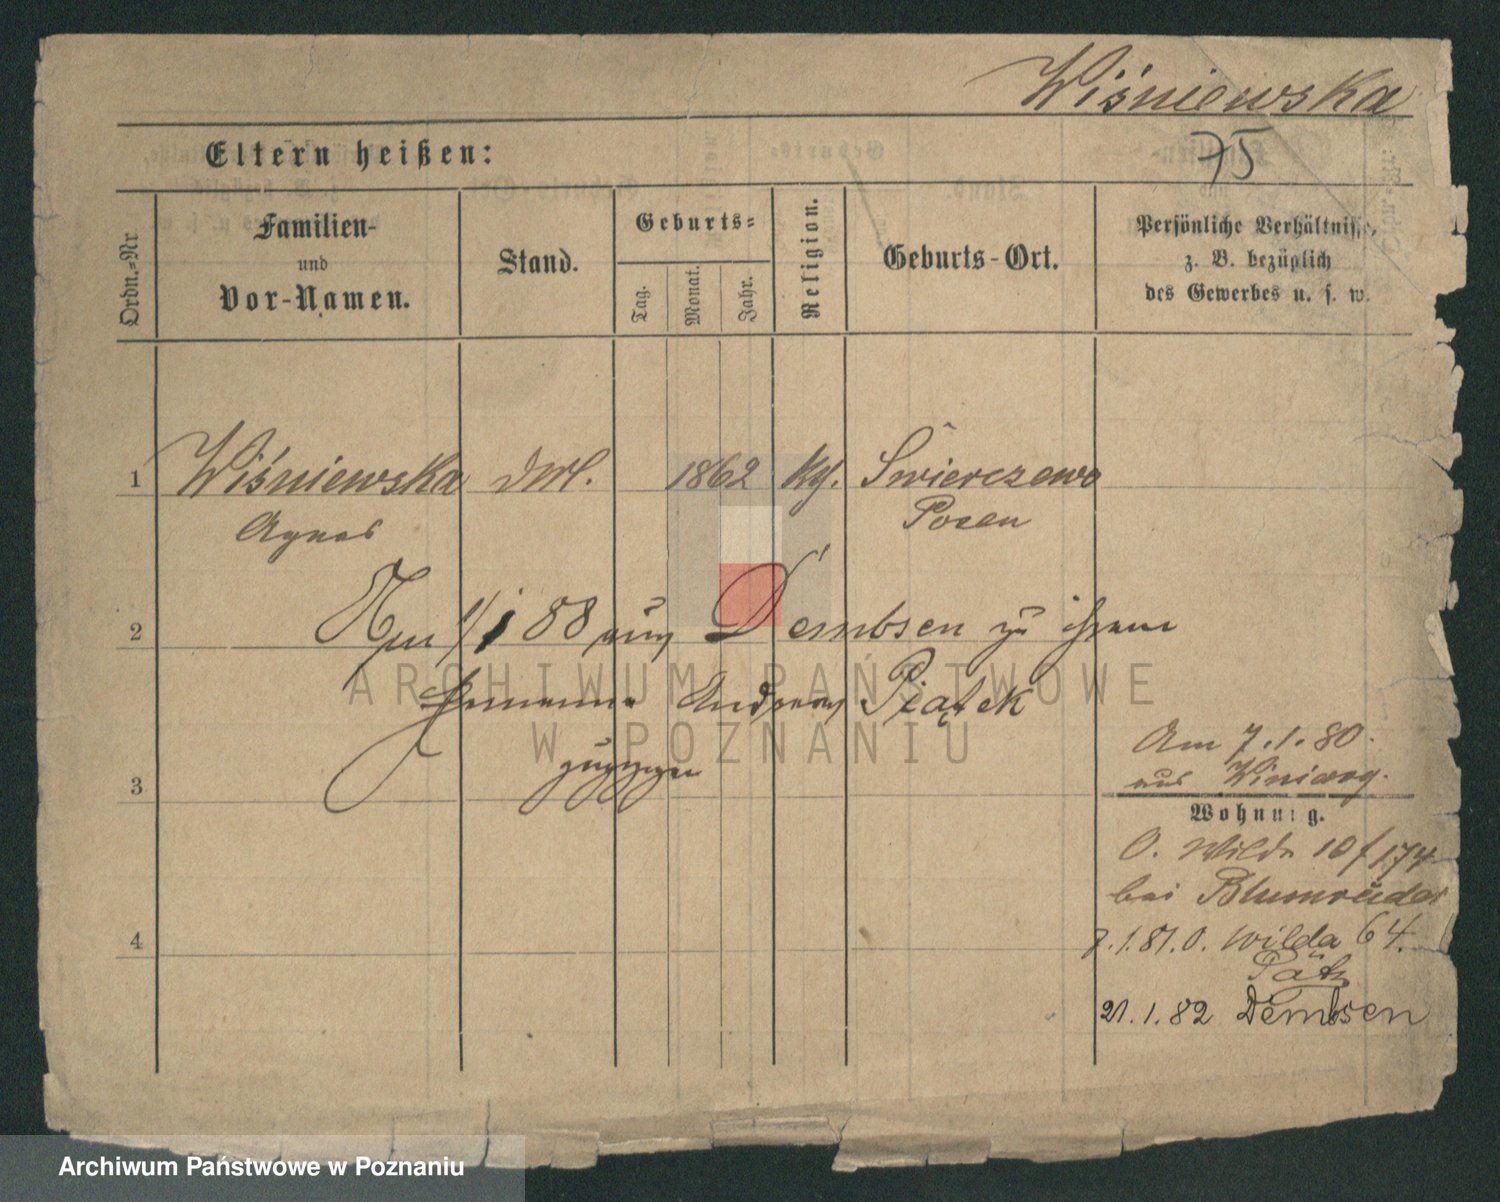 Wiśniewska
75
Eltern heißen:
Ordn.=Nr
Familien-
und
Vor-Namen.
Stand.
Geburts=
Tag.
Monat.
Jahr.
Religion.
Geburts-Ort.
Persönliche Verhältnisse,
z. B. bezüglich
des Gewerbes u. s. w.
1
Wiśniewska
1862
Swierczewo
Agnes
Posen
2
88 aus Dembsen zu ihrem
Andreas Piątek
zugezogen
3
Am 7.1.80.
aus Winiary.
Wohnung.
O. Wilda 10 / 174
bei
7.1.81. O. Wilda 64.
4
21.1.82 Dembsen
ARCHIWUM PAŃSTWOWE
W POZNANIU
Archiwum Państwowe w Poznaniu